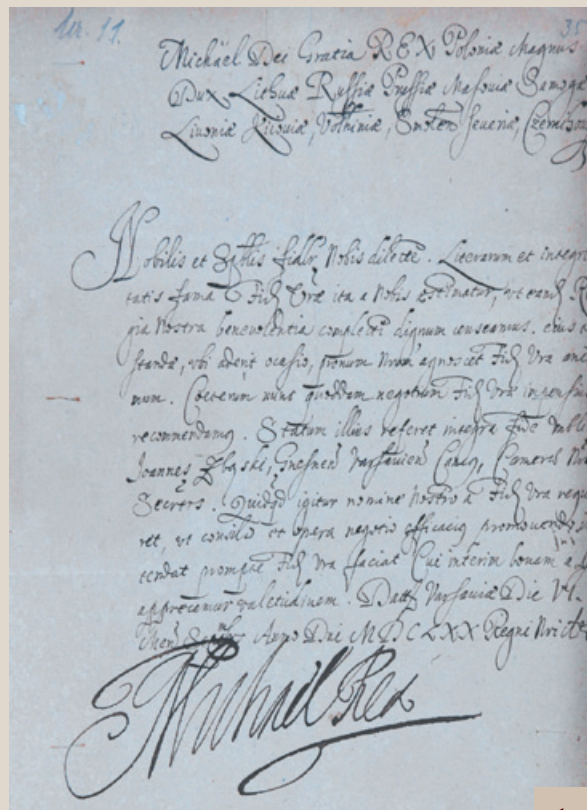 35
Michäel Dei Gratia REX Poloniæ Magnus
Dux Lithuæ Russiæ Prussiæ Masoviæ Samogæ
Livoniæ Kioviæ, Volhiniæ, Smolen Severiæ, Czernihov
Nobilis et fidlr Nobis dilecte. Literarum et integri
tatis fama Fidt Vræ ita a Nobis æstimatur, ut eand R
gia Nostra benevolentia complecti dignum censeamus. eius
standæ, ubi aderit ocasio, pronum Nrum agnoscet Fidt Vra ani
mum. Cœterum nunc quoddam negotium Fidt Vræ impensius
recommendamq. Statum illius referet integra fide
Joannes, Gnesnen Varsavien Canus, Cameræ
Secrers. Quidqd igitur nomine Nostro a Fidt Vra requi
ret, ut consilio et opera negotio efficaciq promovendo
tendat prompte Fidt Vra faciat Cui interim bonam a
apprecamur valetudinem. Datt Varsaviæ Die VI
Anno Dni MDCLXX Regni Nri
Michael Rex